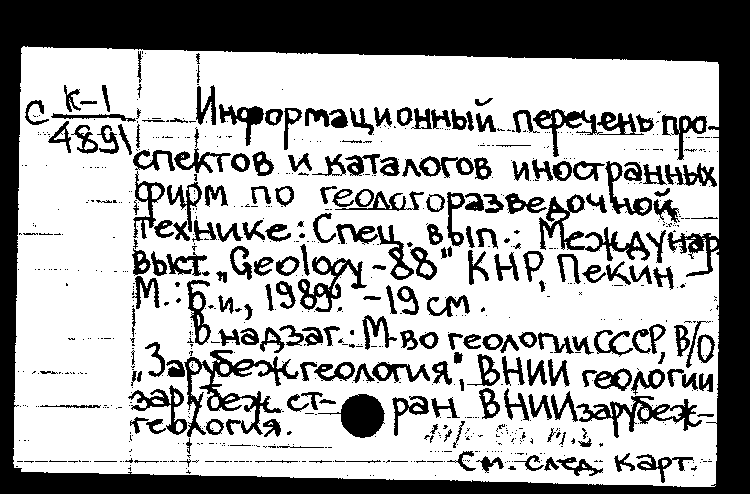 С К-1
4891
Информационный перечень про-
спектов и каталогов иностранных
фирм по геологоразведочной
технике: Спец. вып.: Междунар
выст. „Geology-88" КНР, Пекин. -
М.: Б.и., 1989. -19 см.
В надзаг.: М-во геологии СССР, В/О
„Зарубежгеология", ВНИИ геологии
зарубеж. ст- ран ВНИИзарубеж-
геология.
См. след. карт.